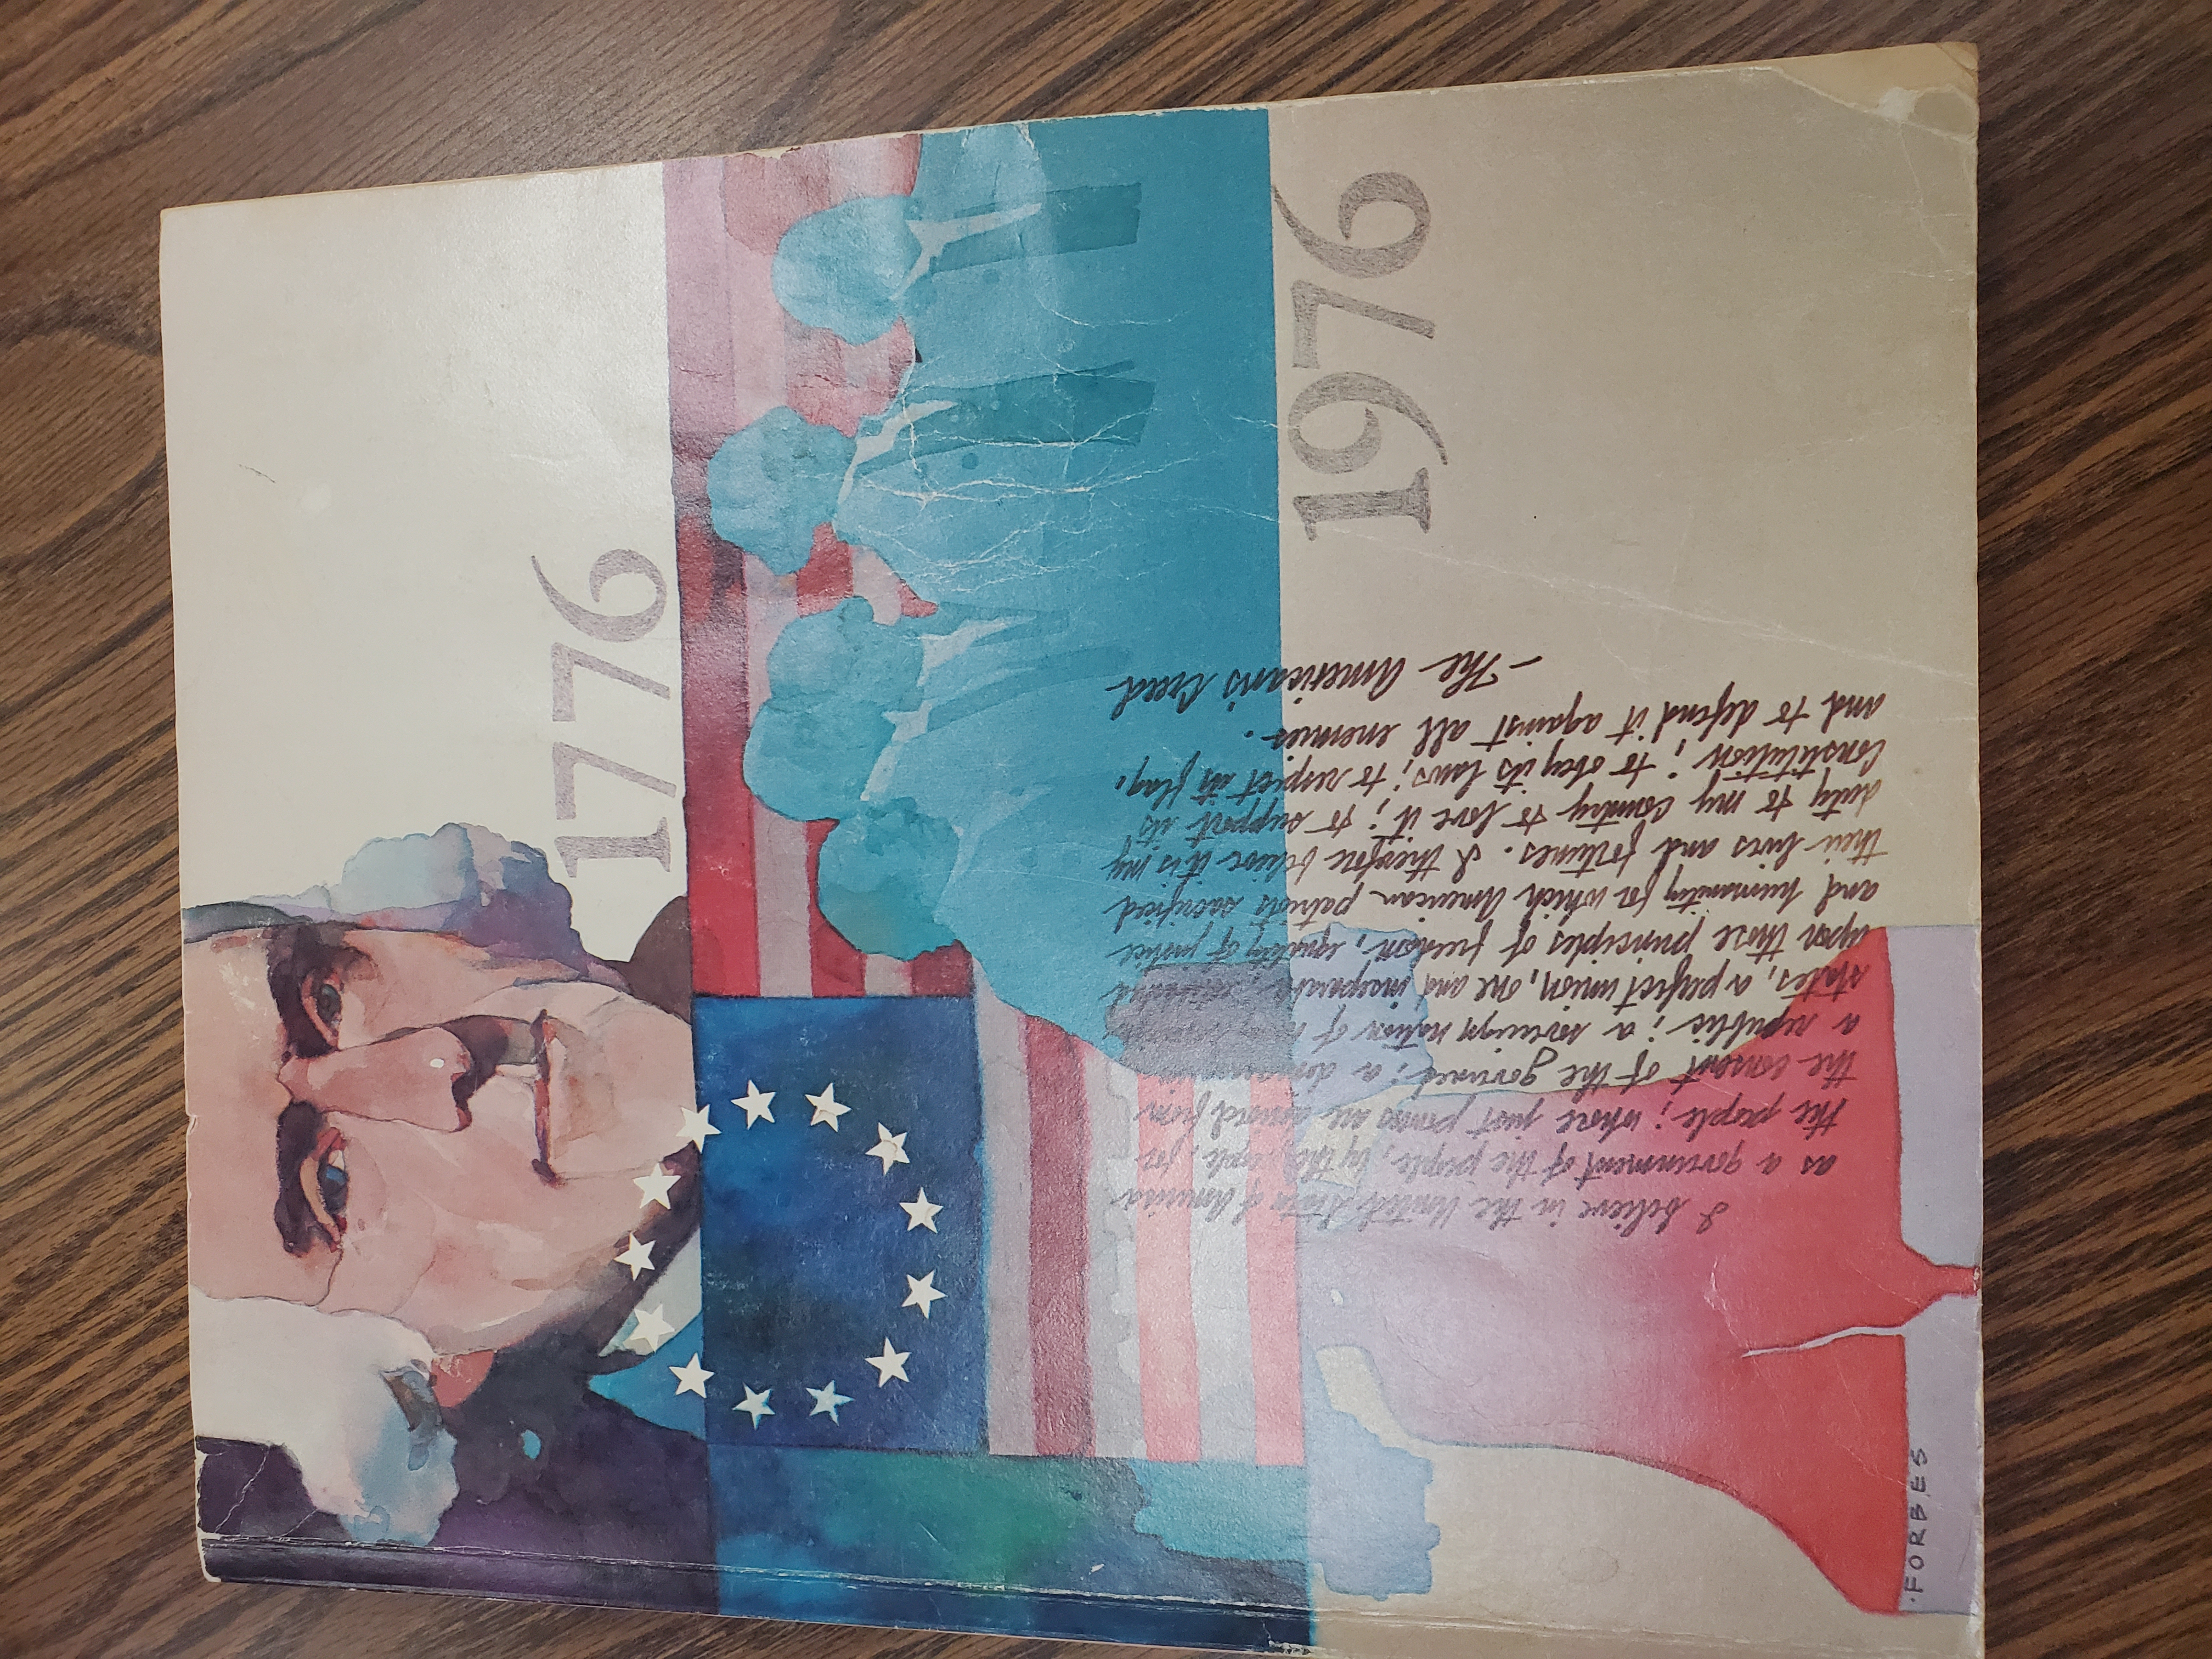 1776
1976
I believe in the United States of America
as a government of the people, by the people, for
the people; whose just powers are derived from
the consent of the governed; a
a republic; a sovereign nation of
states, a perfect union, one and inseparable;
upon those principles of freedom, equality of justice
and humanity for which American patriots sacrificed
their lives and fortunes. I therefore believe it is my
duty to my Country to love it; to support its
Constitution; to obey its laws; to respect its flag,
and to defend it against all enemies.
- The American's Creed
·FORBES